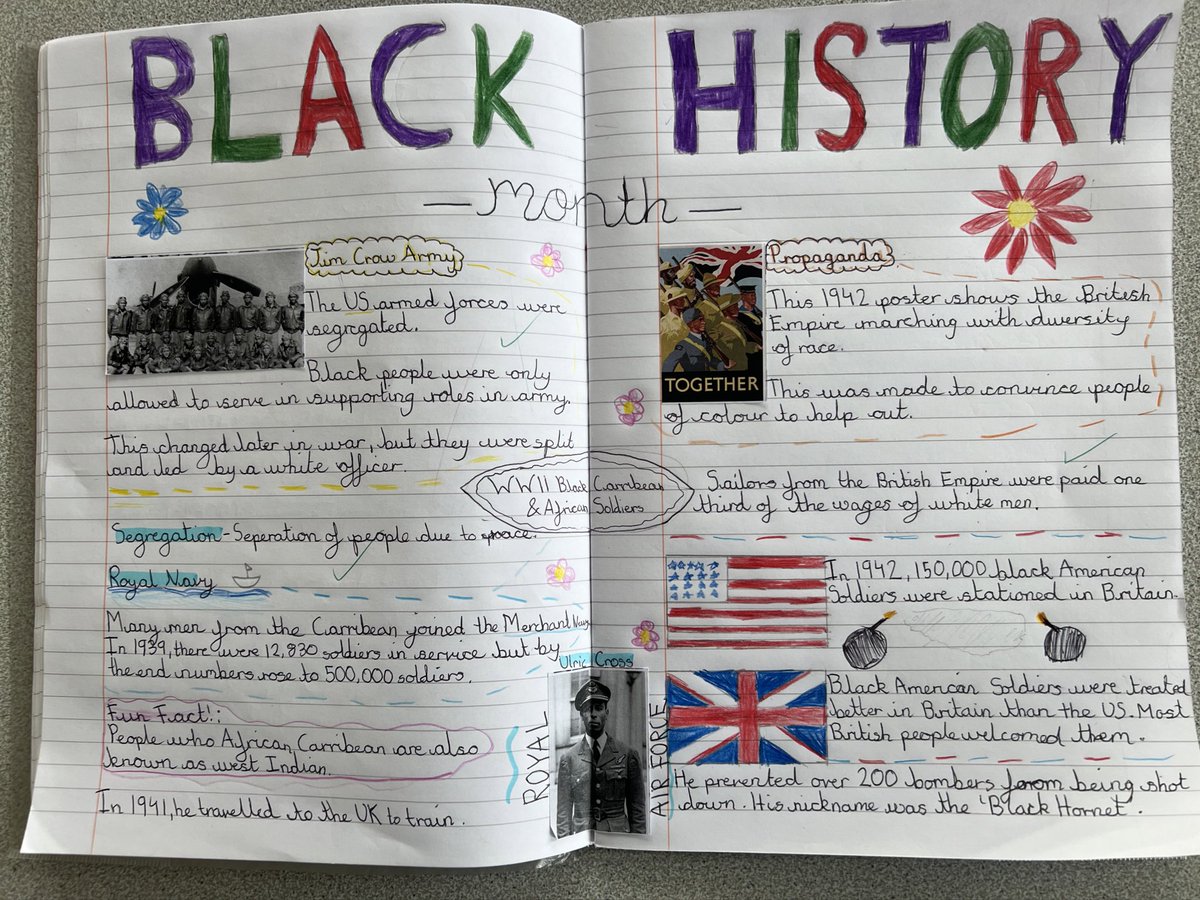 BLACK HISTORY
- month -
Jim Crow Army
The US armed forces were
segregated.
Black people were only
allowed to serve in supporting roles in army.
This changed later in war, but they were split
and led by a white officer.
Segregation - Seperation of people due to race.
Royal Navy
Many men from the Carribean joined the Merchant Navy
In 1939, there were 12,830 soldiers in service but by
the end numbers rose to 500,000 soldiers.
Fun Fact!:
People who African Carribean are also
known as west Indian.
In 1941, he travelled to the UK to train.
WWII Black Carribean
& African Soldiers
Ulric Cross
ROYAL
AIR FORCE
Propaganda
This 1942 poster shows the British
Empire marching with diversity
of race.
TOGETHER
This was made to convince people
of colour to help out.
Sailors from the British Empire were paid one
third of the wages of white men.
In 1942, 150,000 black American
Soldiers were stationed in Britain.
Black American Soldiers were treated
better in Britain than the US. Most
British people welcomed them.
He prevented over 200 bombers from being shot
down. His nickname was the 'Black Hornet'.